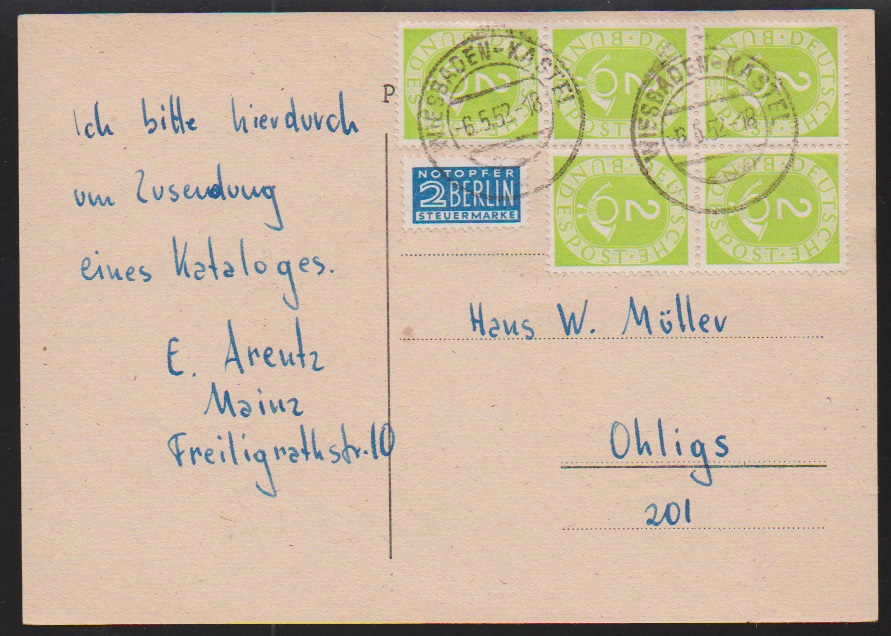 Ich bitte hierdurch
um Zusendung
eines Kataloges.
E. Arentz
Mainz
Freiligrathstr. 10
P
DEUTSCHE BUNDESPOST 2
DEUTSCHE BUNDESPOST 2
DEUTSCHE BUNDESPOST 2
DEUTSCHE BUNDESPOST 2
DEUTSCHE BUNDESPOST 2
WIESBADEN-KASTEL
-6.5.52.-18
WIESBADEN-KASTEL
-6.5.52.-18
NOTOPFER
2 BERLIN
STEUERMARKE
Hans W. Müller
Ohligs
201